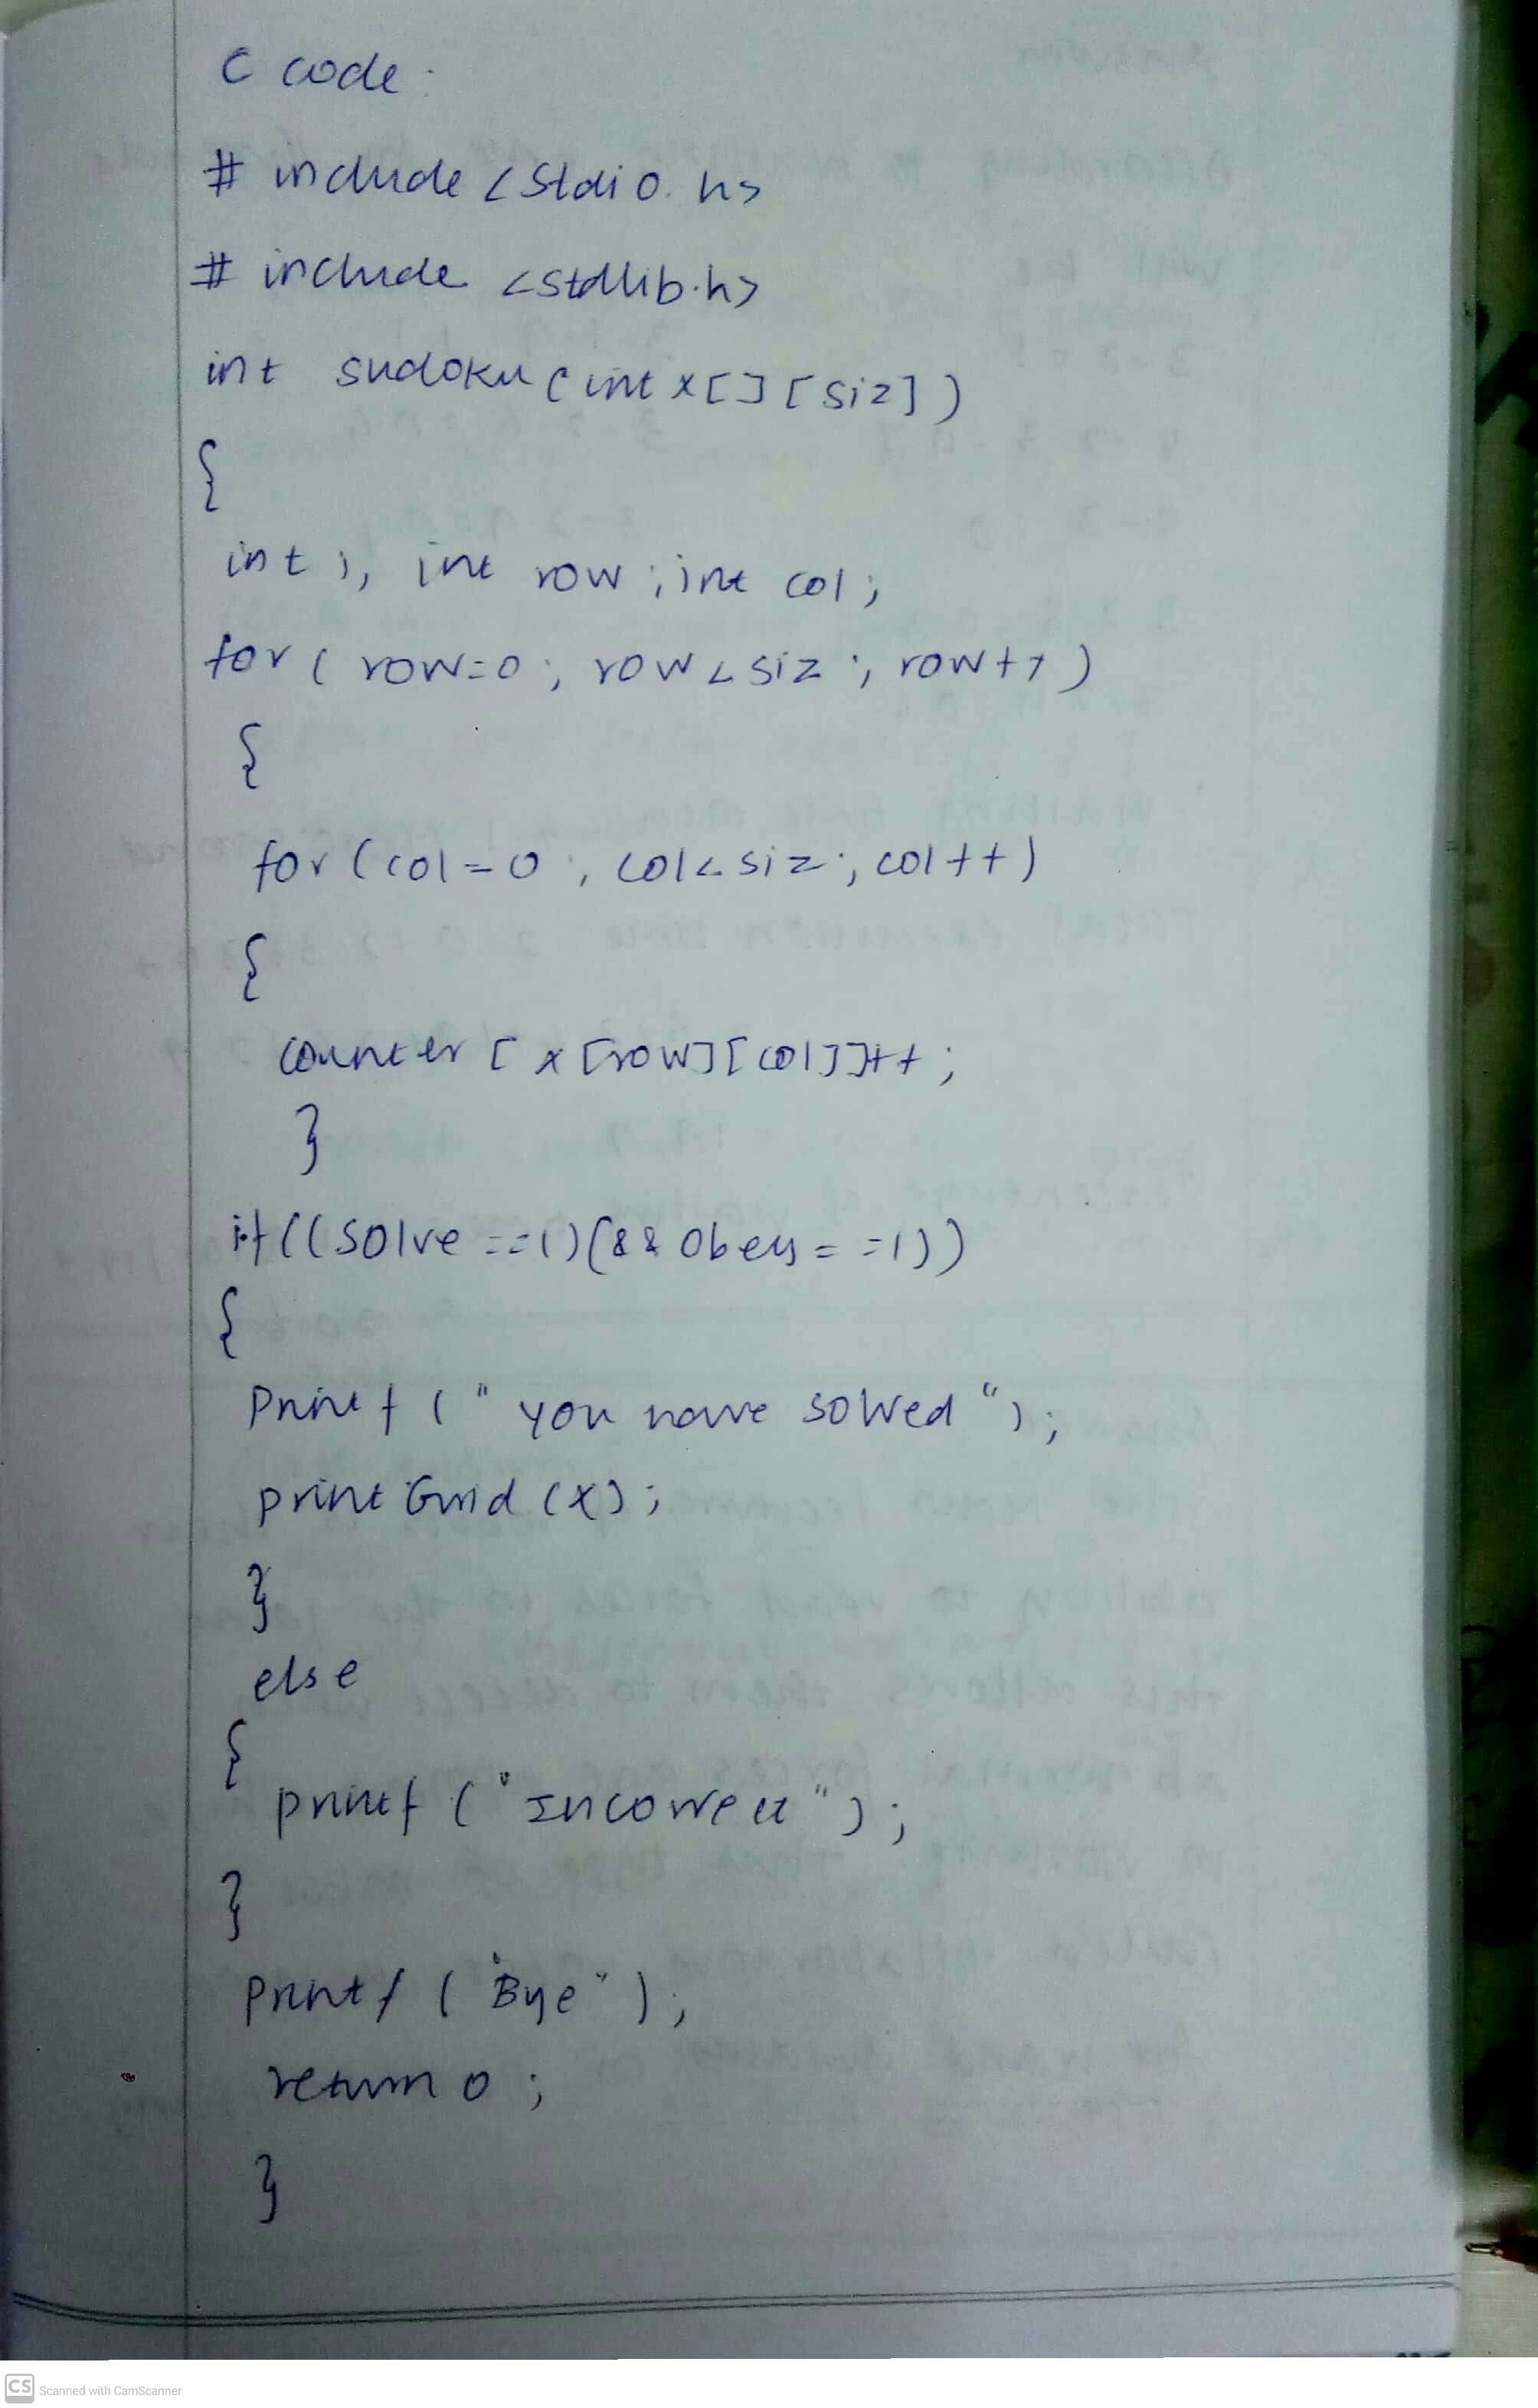 C code:
# include <stdio.h>
# include <stdlib.h>
int sudoku (int x[][siz])
{
int i, int row; int col;
for (row=0; row<siz; row++)
{
for (col=0; col<siz; col++)
{
counter [x[row][col]]++;
}
if((solve ==1)(&& obey = =1))
{
Printf ("you have solved");
print Grid (x);
}
else
{
printf ("Incorrect");
}
printf ("Bye");
return 0;
}
CS Scanned with CamScanner